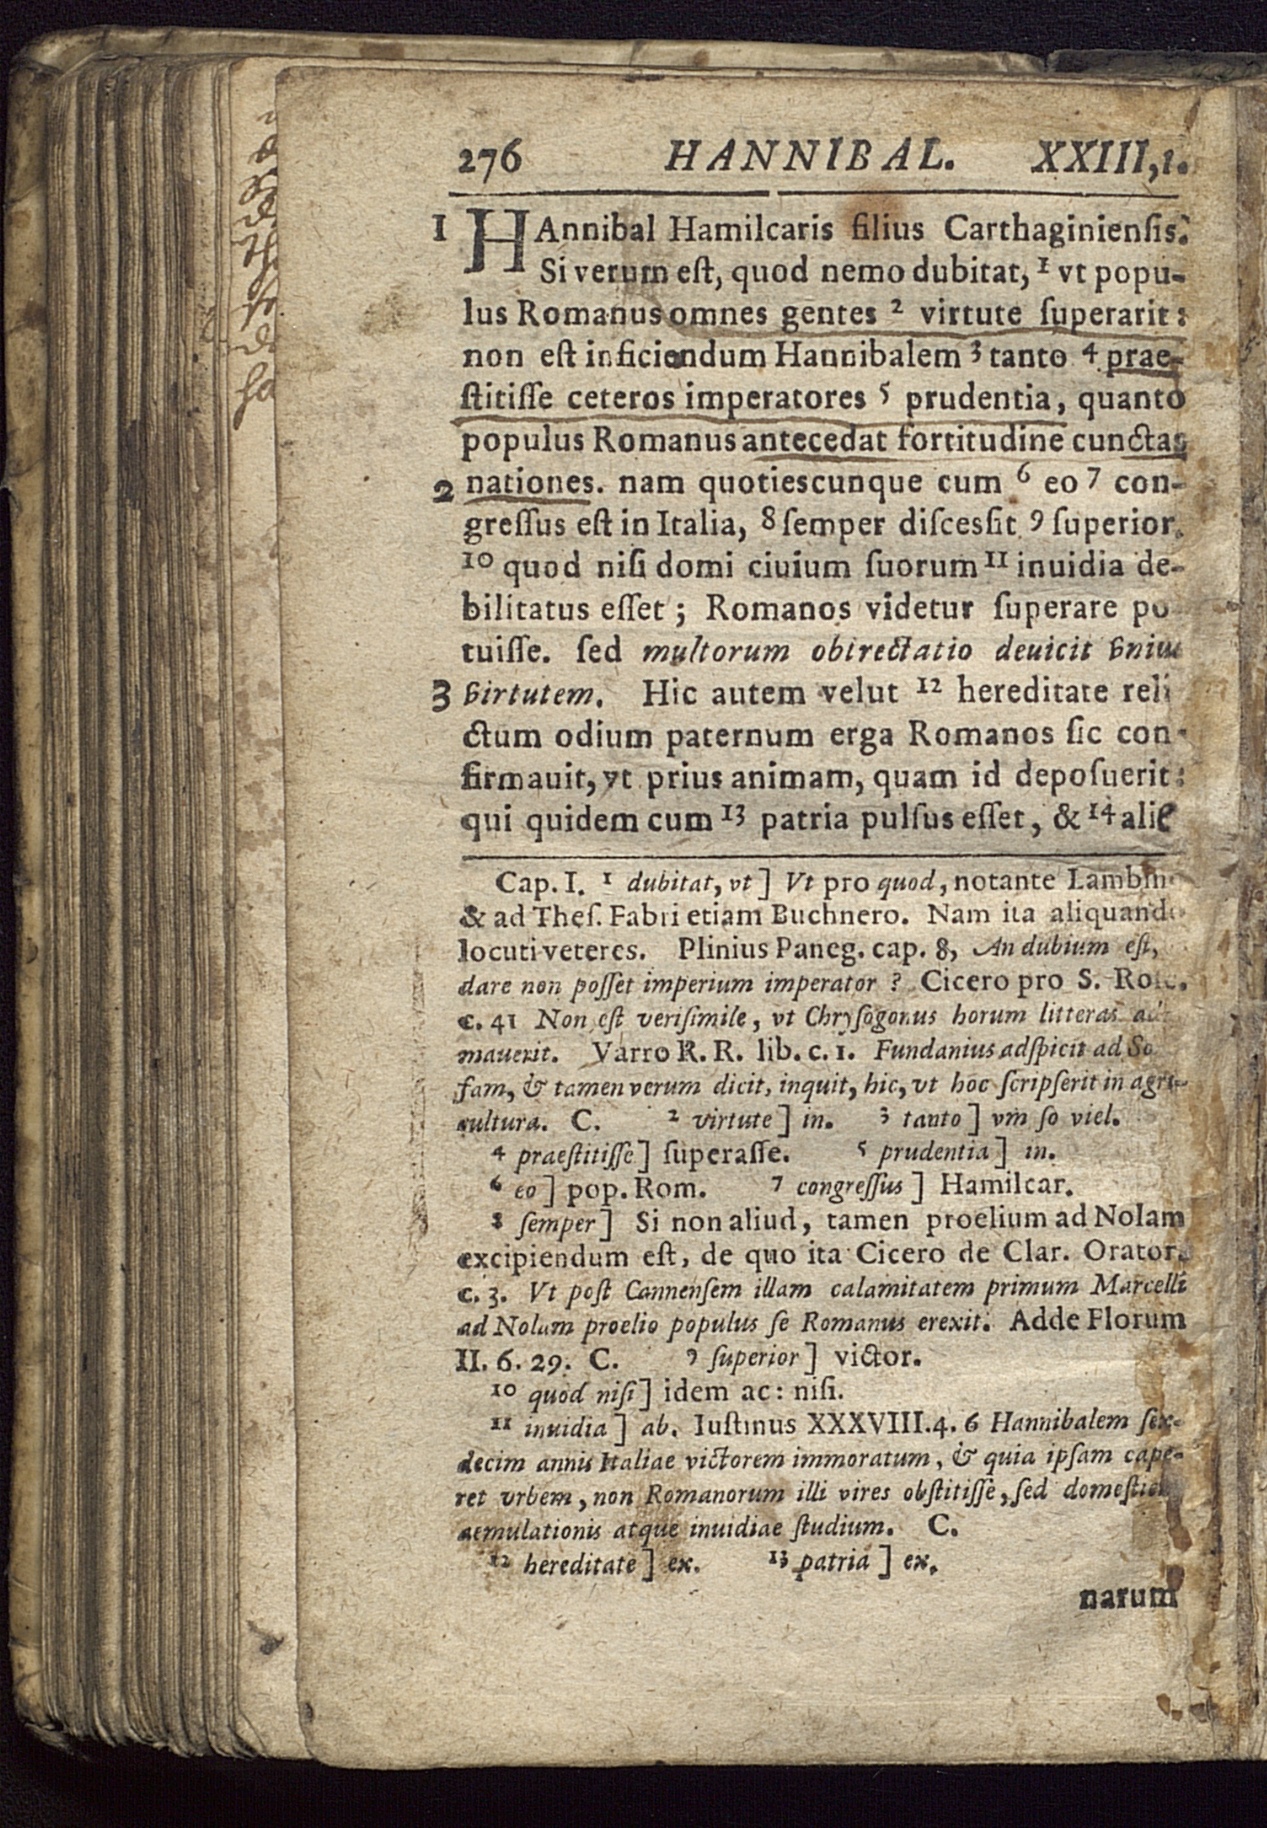 276 HANNIBAL. XXIII,1.
1 HAnnibal Hamilcaris filius Carthaginiensis.
Si verum eſt, quod nemo dubitat, ¹ vt popu-
lus Romanus omnes gentes ² virtute ſuperarit:
non eſt inficiendum Hannibalem ³ tanto ⁴ prae-
ſtitiſſe ceteros imperatores ⁵ prudentia, quanto
populus Romanus antecedat fortitudine cunctas
2 nationes. nam quotiescunque cum ⁶ eo ⁷ con-
greſſus eſt in Italia, ⁸ ſemper diſceſſit ⁹ ſuperior.
¹⁰ quod niſi domi ciuium ſuorum ¹¹ inuidia de-
bilitatus eſſet; Romanos videtur ſuperare po
tuiſſe. ſed multorum obtrectatio deuicit vniu
3 virtutem. Hic autem velut ¹² hereditate reli
ctum odium paternum erga Romanos ſic con-
firmauit, vt prius animam, quam id depoſuerit:
qui quidem cum ¹³ patria pulſus eſſet, & ¹⁴ alie
Cap. I. ¹ dubitat, vt] Vt pro quod, notante Lambin
& ad Theſ. Fabri etiam Buchnero. Nam ita aliquando
locuti veteres. Plinius Paneg. cap. 8, An dubium eſt,
dare non poſſet imperium imperator? Cicero pro S. Roſc.
c. 41 Non eſt veriſimile, vt Chryſogonus horum litteras ad
mauerit. Varro R. R. lib. c. 1. Fundanius adſpicit ad So
ſam, & tamen verum dicit, inquit, hic, vt hoc ſcripſerit in agri-
cultura. C. ² virtute] in. ³ tanto] vm ſo viel.
⁴ praeſtitiſſe] ſuperaſſe. ⁵ prudentia] in.
⁶ eo] pop. Rom. ⁷ congreſſus] Hamilcar.
⁸ ſemper] Si non aliud, tamen proelium ad Nolam
excipiendum eſt, de quo ita Cicero de Clar. Orator.
c. 3. Vt poſt Cannenſem illam calamitatem primum Marcelli
ad Nolam proelio populus ſe Romanus erexit. Adde Florum
II. 6. 29. C. ⁹ ſuperior] victor.
¹⁰ quod niſi] idem ac: niſi.
¹¹ inuidia] ab. Iuſtinus XXXVIII. 4. 6 Hannibalem ſex-
decim annis Italiae victorem immoratum, & quia ipſam cape-
ret vrbem, non Romanorum illi vires obſtitiſſe, ſed domeſtic
aemulationis atque inuidiae ſtudium. C.
¹² hereditate] ex. ¹³ patria] ex.
narum